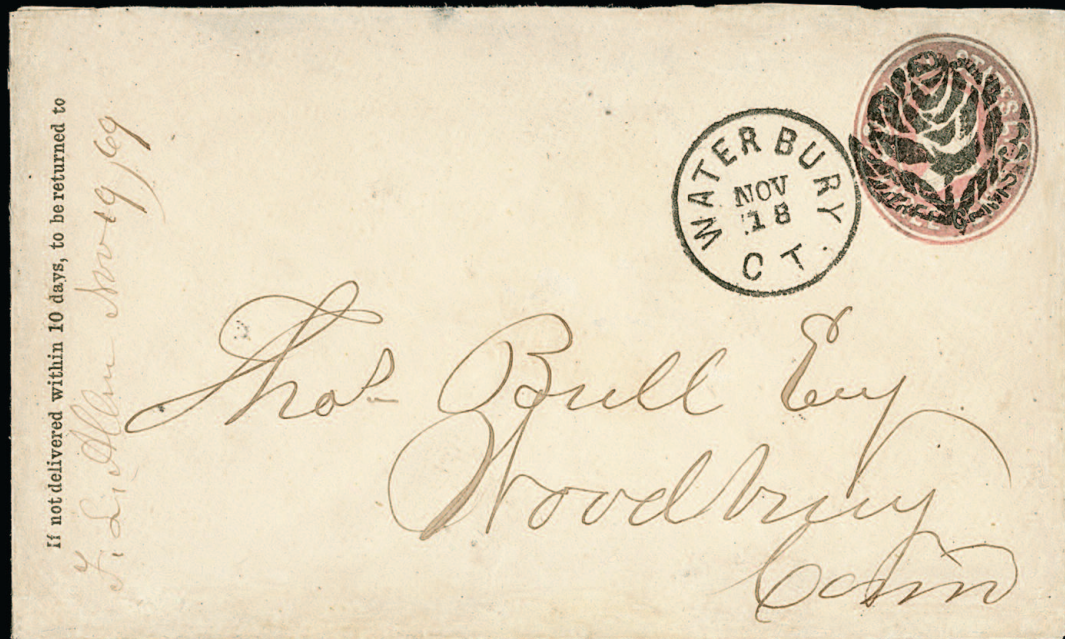 If not delivered within 10 days, to be returned to
F. L. Allen Nov 19/69
WATERBURY
NOV
18
CT.
STATES
Thos. Bull Esq
Woodbury
Conn